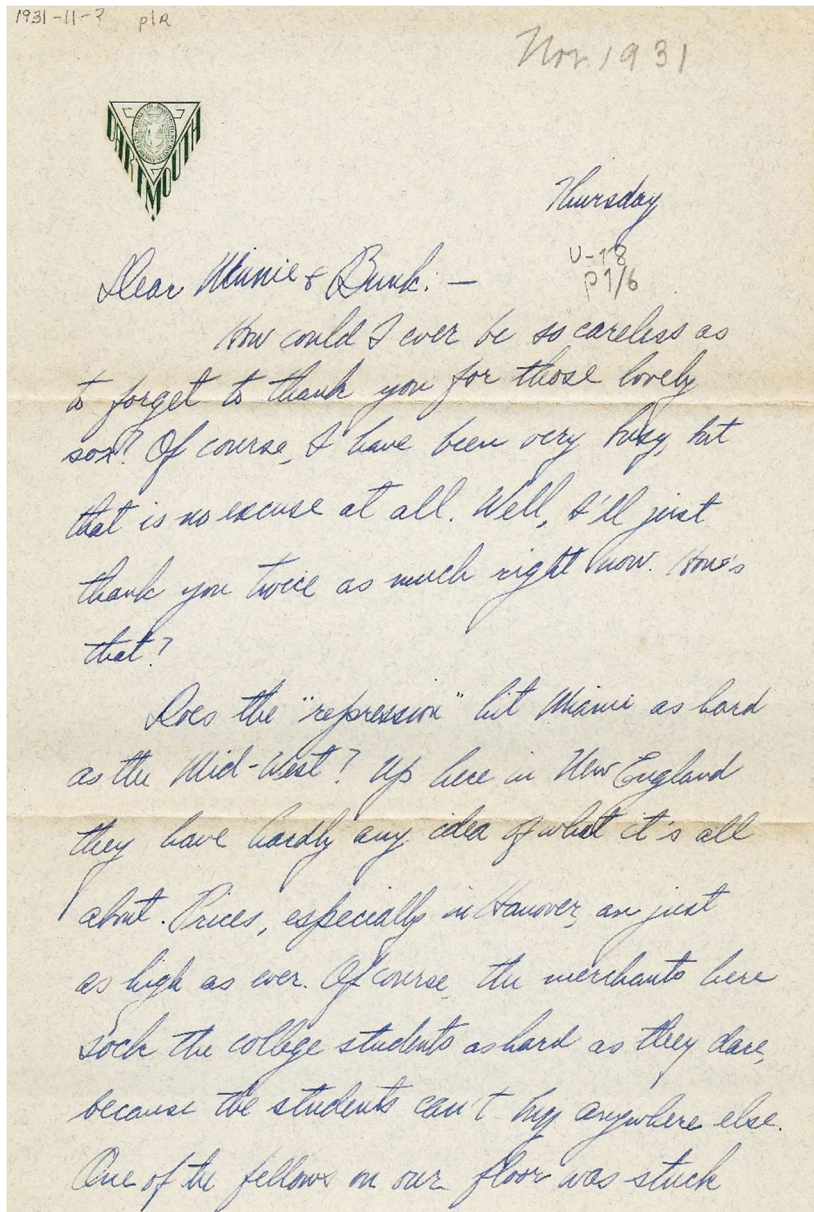 1931-11-? p1R
Nov. 1931
DARTMOUTH
Thursday
U-18
p1/6
Dear Minnie & Bunk: —
How could I ever be so careless as
to forget to thank you for those lovely
sox? Of course, I have been very busy, but
that is no excuse at all. Well, I'll just
thank you twice as much right now. How's
that?
Does the "repression" hit Miami as hard
as the Mid-West? Up here in New England
they have hardly any idea of what it's all
about. Prices, especially in Hanover, are just
as high as ever. Of course, the merchants here
sock the college students as hard as they dare,
because the students can't buy anywhere else.
One of the fellows on our floor was stuck